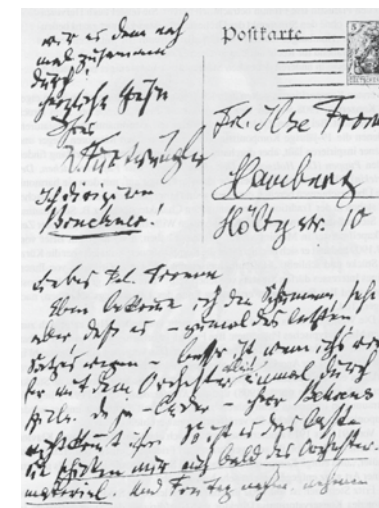 wir es dann noch
mal zusammen
durch!
herzliche Grüße
Ihres
W. Furtwängler
Ich dirigiere
Bruckner!
Postkarte
5
Frl. Ilse Fromm
Hamburg
Höltystr. 10
Liebes Frl. Fromm
Eben bekomme ich den Schumann, sehe
aber, daß es – zumal des letzten
Satzes wegen – besser ist wenn ichs vor
her mit dem Orchester allein einmal durch
spiele. da ja – leider – Herr Behrens
nicht kommt So ist es das beste
sie schicken mir auch bald das Orchester-
material. Und Freitag nachm. nehmen